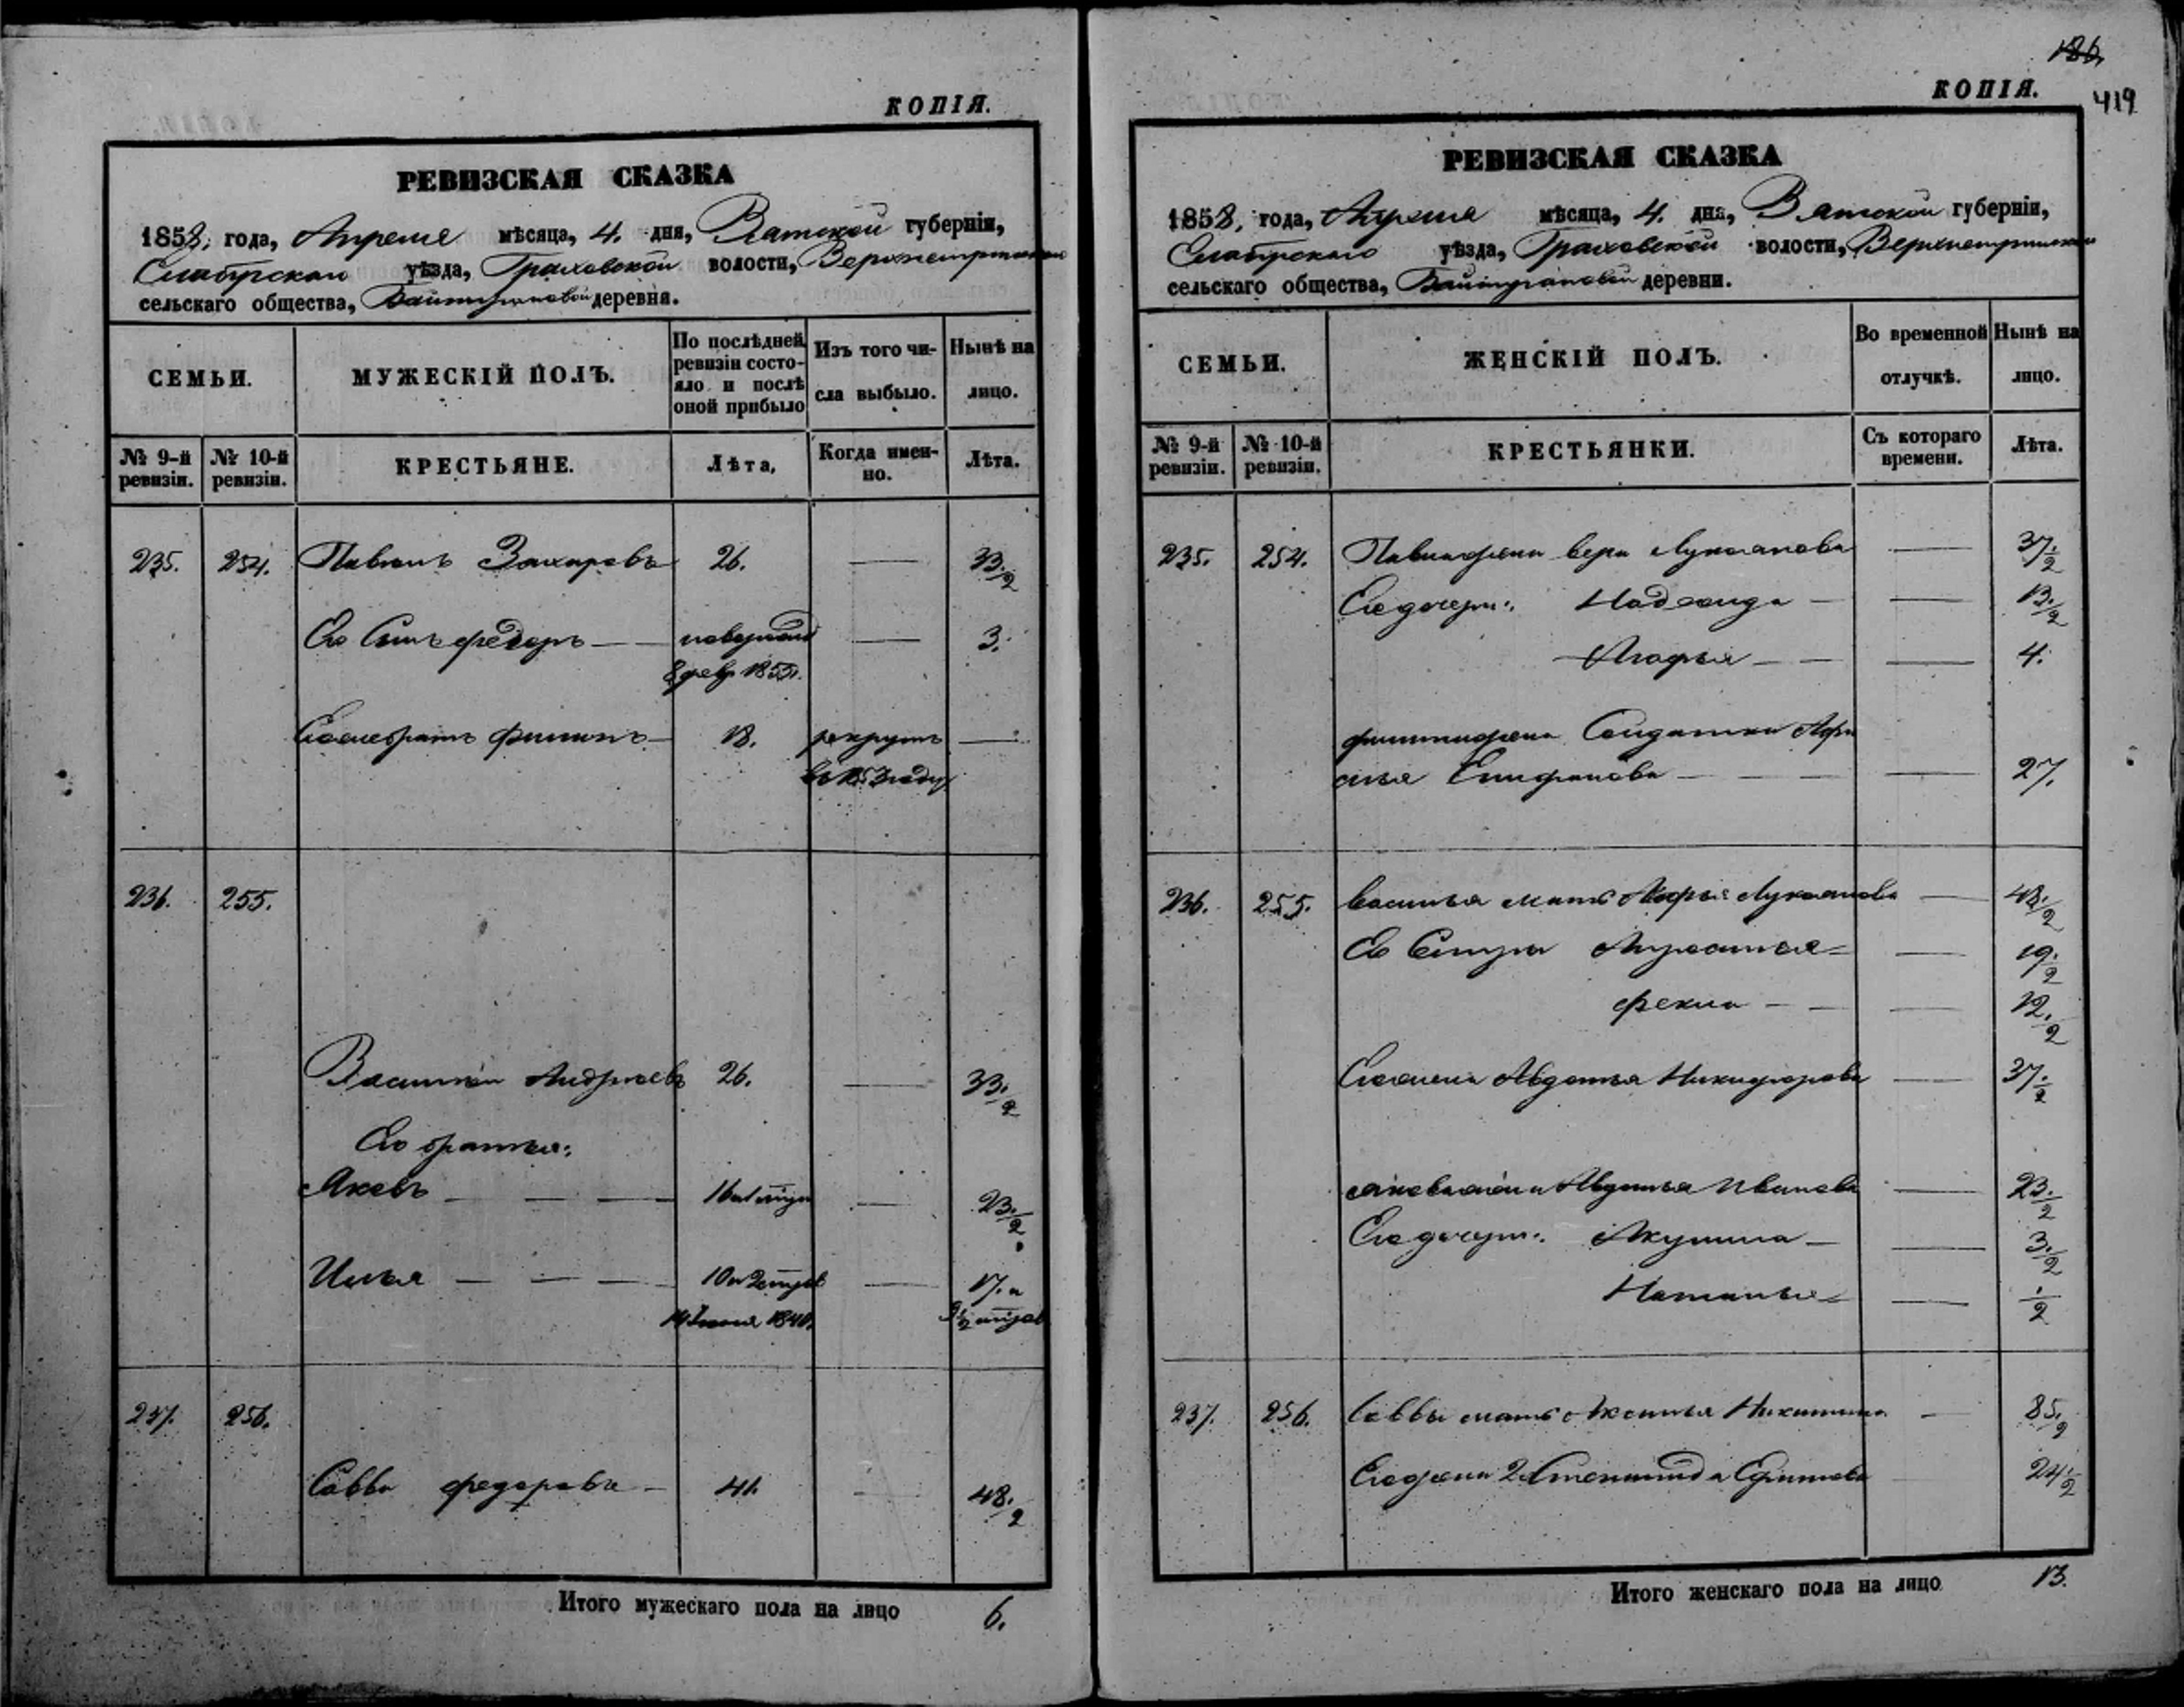 КОПІЯ.
РЕВИЗСКАЯ СКАЗКА
1858, года, Апреля мѣсяца, 4. дня, Вятской губерніи,
Елабугскаго уѣзда, Граховской волости,
сельскаго общества, Байтугановой деревня.
СЕМЬИ. МУЖЕСКІЙ ПОЛЪ. По послѣдней ревизіи состояло и послѣ оной прибыло Изъ того числа выбыло. Нынѣ на лицо.
№ 9-й ревизіи. № 10-й ревизіи. КРЕСТЬЯНЕ. Лѣта, Когда именно. Лѣта.
235. 254. Павелъ Захаровъ 26. — 33.½
Его Сынъ Федоръ — — 3.
8 февр 1855.
Его братъ Филипъ — 18. рекрутъ —
въ 1853 году
236. 255.
Василий Андреевъ 26. — 33.½
Его братья:
Яковъ — — — 16 — 23.½
Илья — — — 10 — 17. и
237. 256.
Савва Федоровъ — 41. — 48.½
Итого мужескаго пола на лицо 6.
186,
КОПІЯ. 419
РЕВИЗСКАЯ СКАЗКА
1858, года, Апреля мѣсяца, 4. дня, Вятской губерніи,
Елабугскаго уѣзда, Граховской волости,
сельскаго общества, Байтугановой деревни.
СЕМЬИ. ЖЕНСКІЙ ПОЛЪ. Во временной отлучкѣ. Нынѣ на лицо.
№ 9-й ревизіи. № 10-й ревизіи. КРЕСТЬЯНКИ. Съ котораго времени. Лѣта.
235. 254. Павла жена Вера Лукоянова — 37.½
Его дочери: Надежда — — 13.½
Агафья — — — 4.
Филиппа жена Солдатка Афи
Епифанова — — — 27.
236. 255. Василья мать Марья Лукоянова — 48.½
Его Сестры — 19.½
Фекла — — — 12.½
Его жена Авдотья Никифорова — 37.½
Якова жена Авдотья Иванова — 23.½
Его дочери: Акулина — — 3.½
Наталья — — ½
237. 256. Саввы мать Аксинья Никитина — 85.½
Его жена 2 Степанида Ефимова 24.½
Итого женскаго пола на лицо 13.